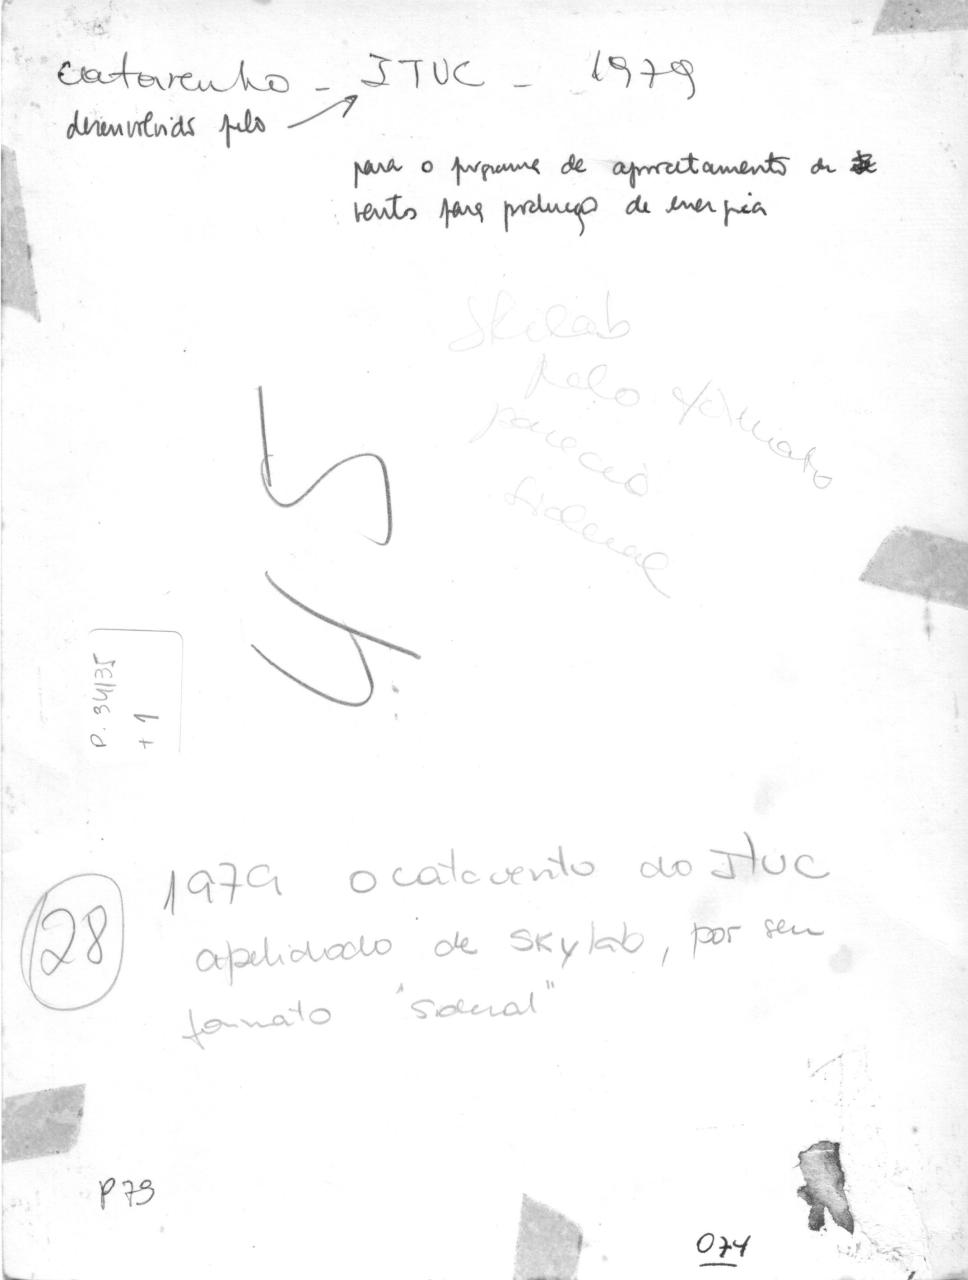 catavento - ITUC - 1979
desenvolvido pelo
para o programa de aproveitamento de
vento para produção de energia
Skilab
pelo formato
parecido
sideral
45
P. 34/35
+ 1
28
1979 o catavento do ITUC
apelidado de Skylab, por seu
formato "sideral"
P79
074